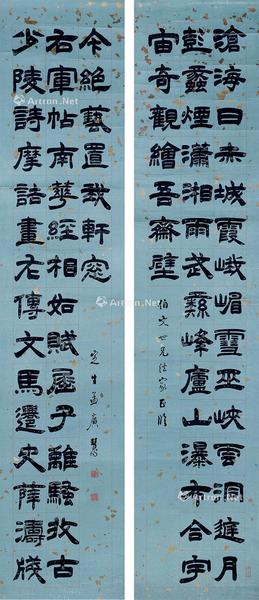 滄海日赤城霞峨嵋雪巫峽雲洞庭月
彭蠡煙瀟湘雨武彝峰廬山瀑布合宇
宙奇觀繪吾齋壁
伯文世兄法家正
少陵詩摩詰畫左傳文馬遷史薛濤牋
右軍帖南華經相如賦屈子離騷收古
今絕藝置我軒窗
定生孟廣慧
Artron.Net
Artron.Net
Artron.Net
Artron.Net